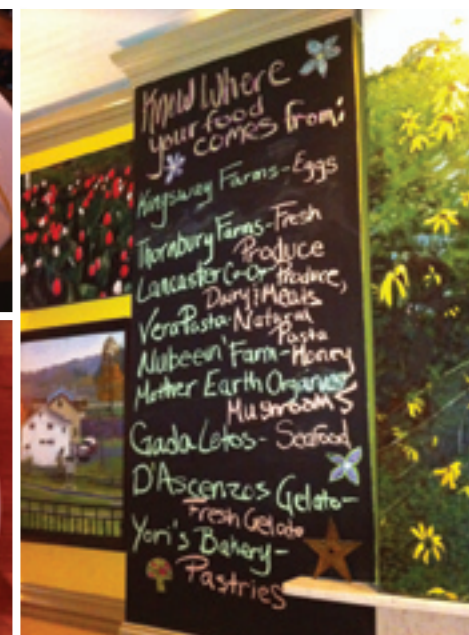 Know Where
your food
comes from:
Kingsway Farms - Eggs
Thornbury Farms - Fresh
Produce
Lancaster Co-Op Produce,
Dairy & Meats
Vera Pasta - Natural
Pasta
Nulbeein' Farm - Honey
Mother Earth Organics
Mushrooms
Gadaletos - Seafood
D'Ascenzos Gelato -
Fresh Gelato
Yori's Bakery -
Pastries